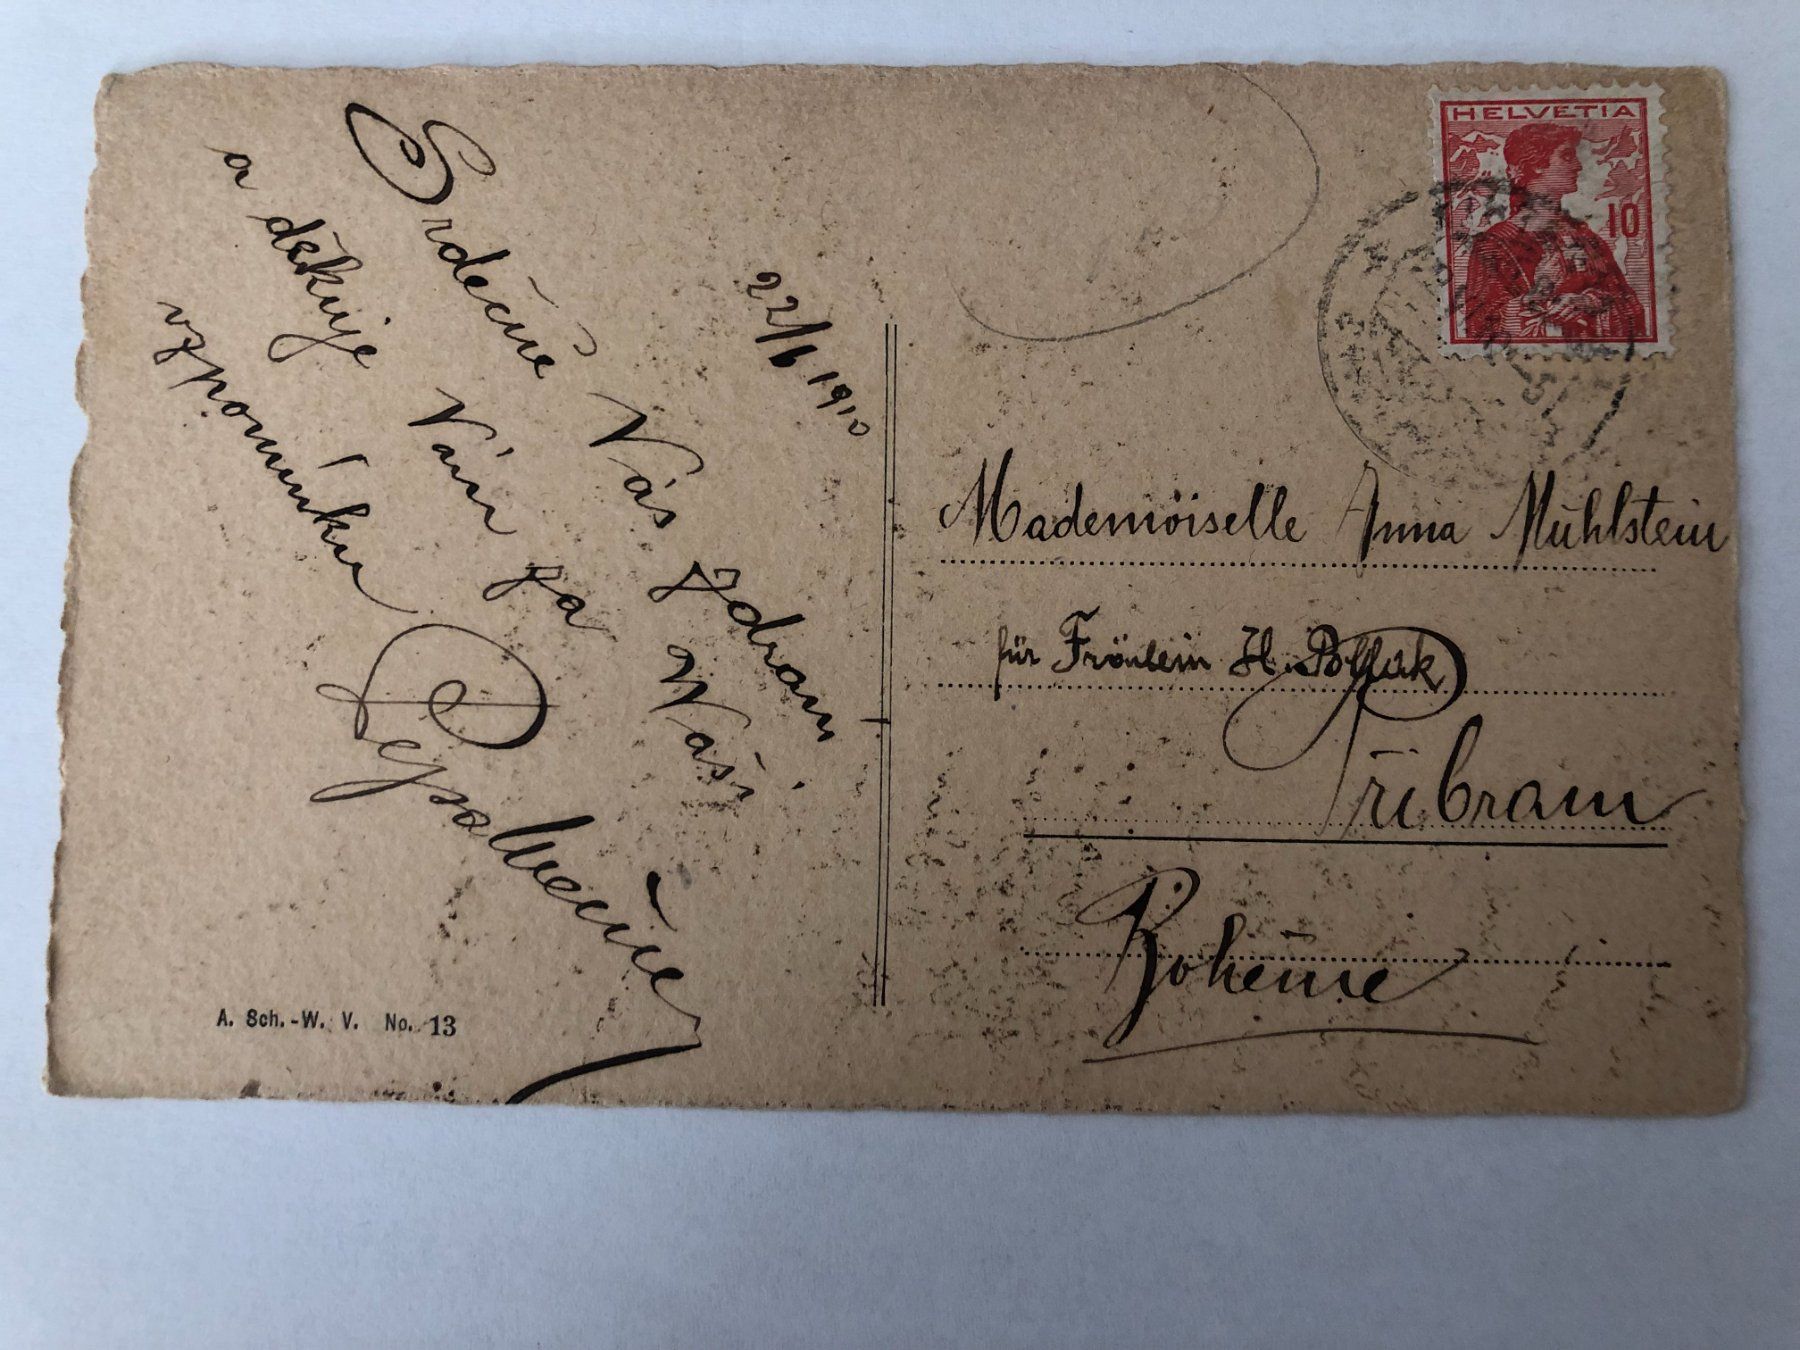 22/6 1910
Srdečně Vás zdraví
a děkuje Vám za Vaši
vzpomínku
A. Sch.-W. V. No. 13
HELVETIA
10
Mademoiselle Anna Mühlstein
für Fräulein H. Pollak
Přibram
Bohême